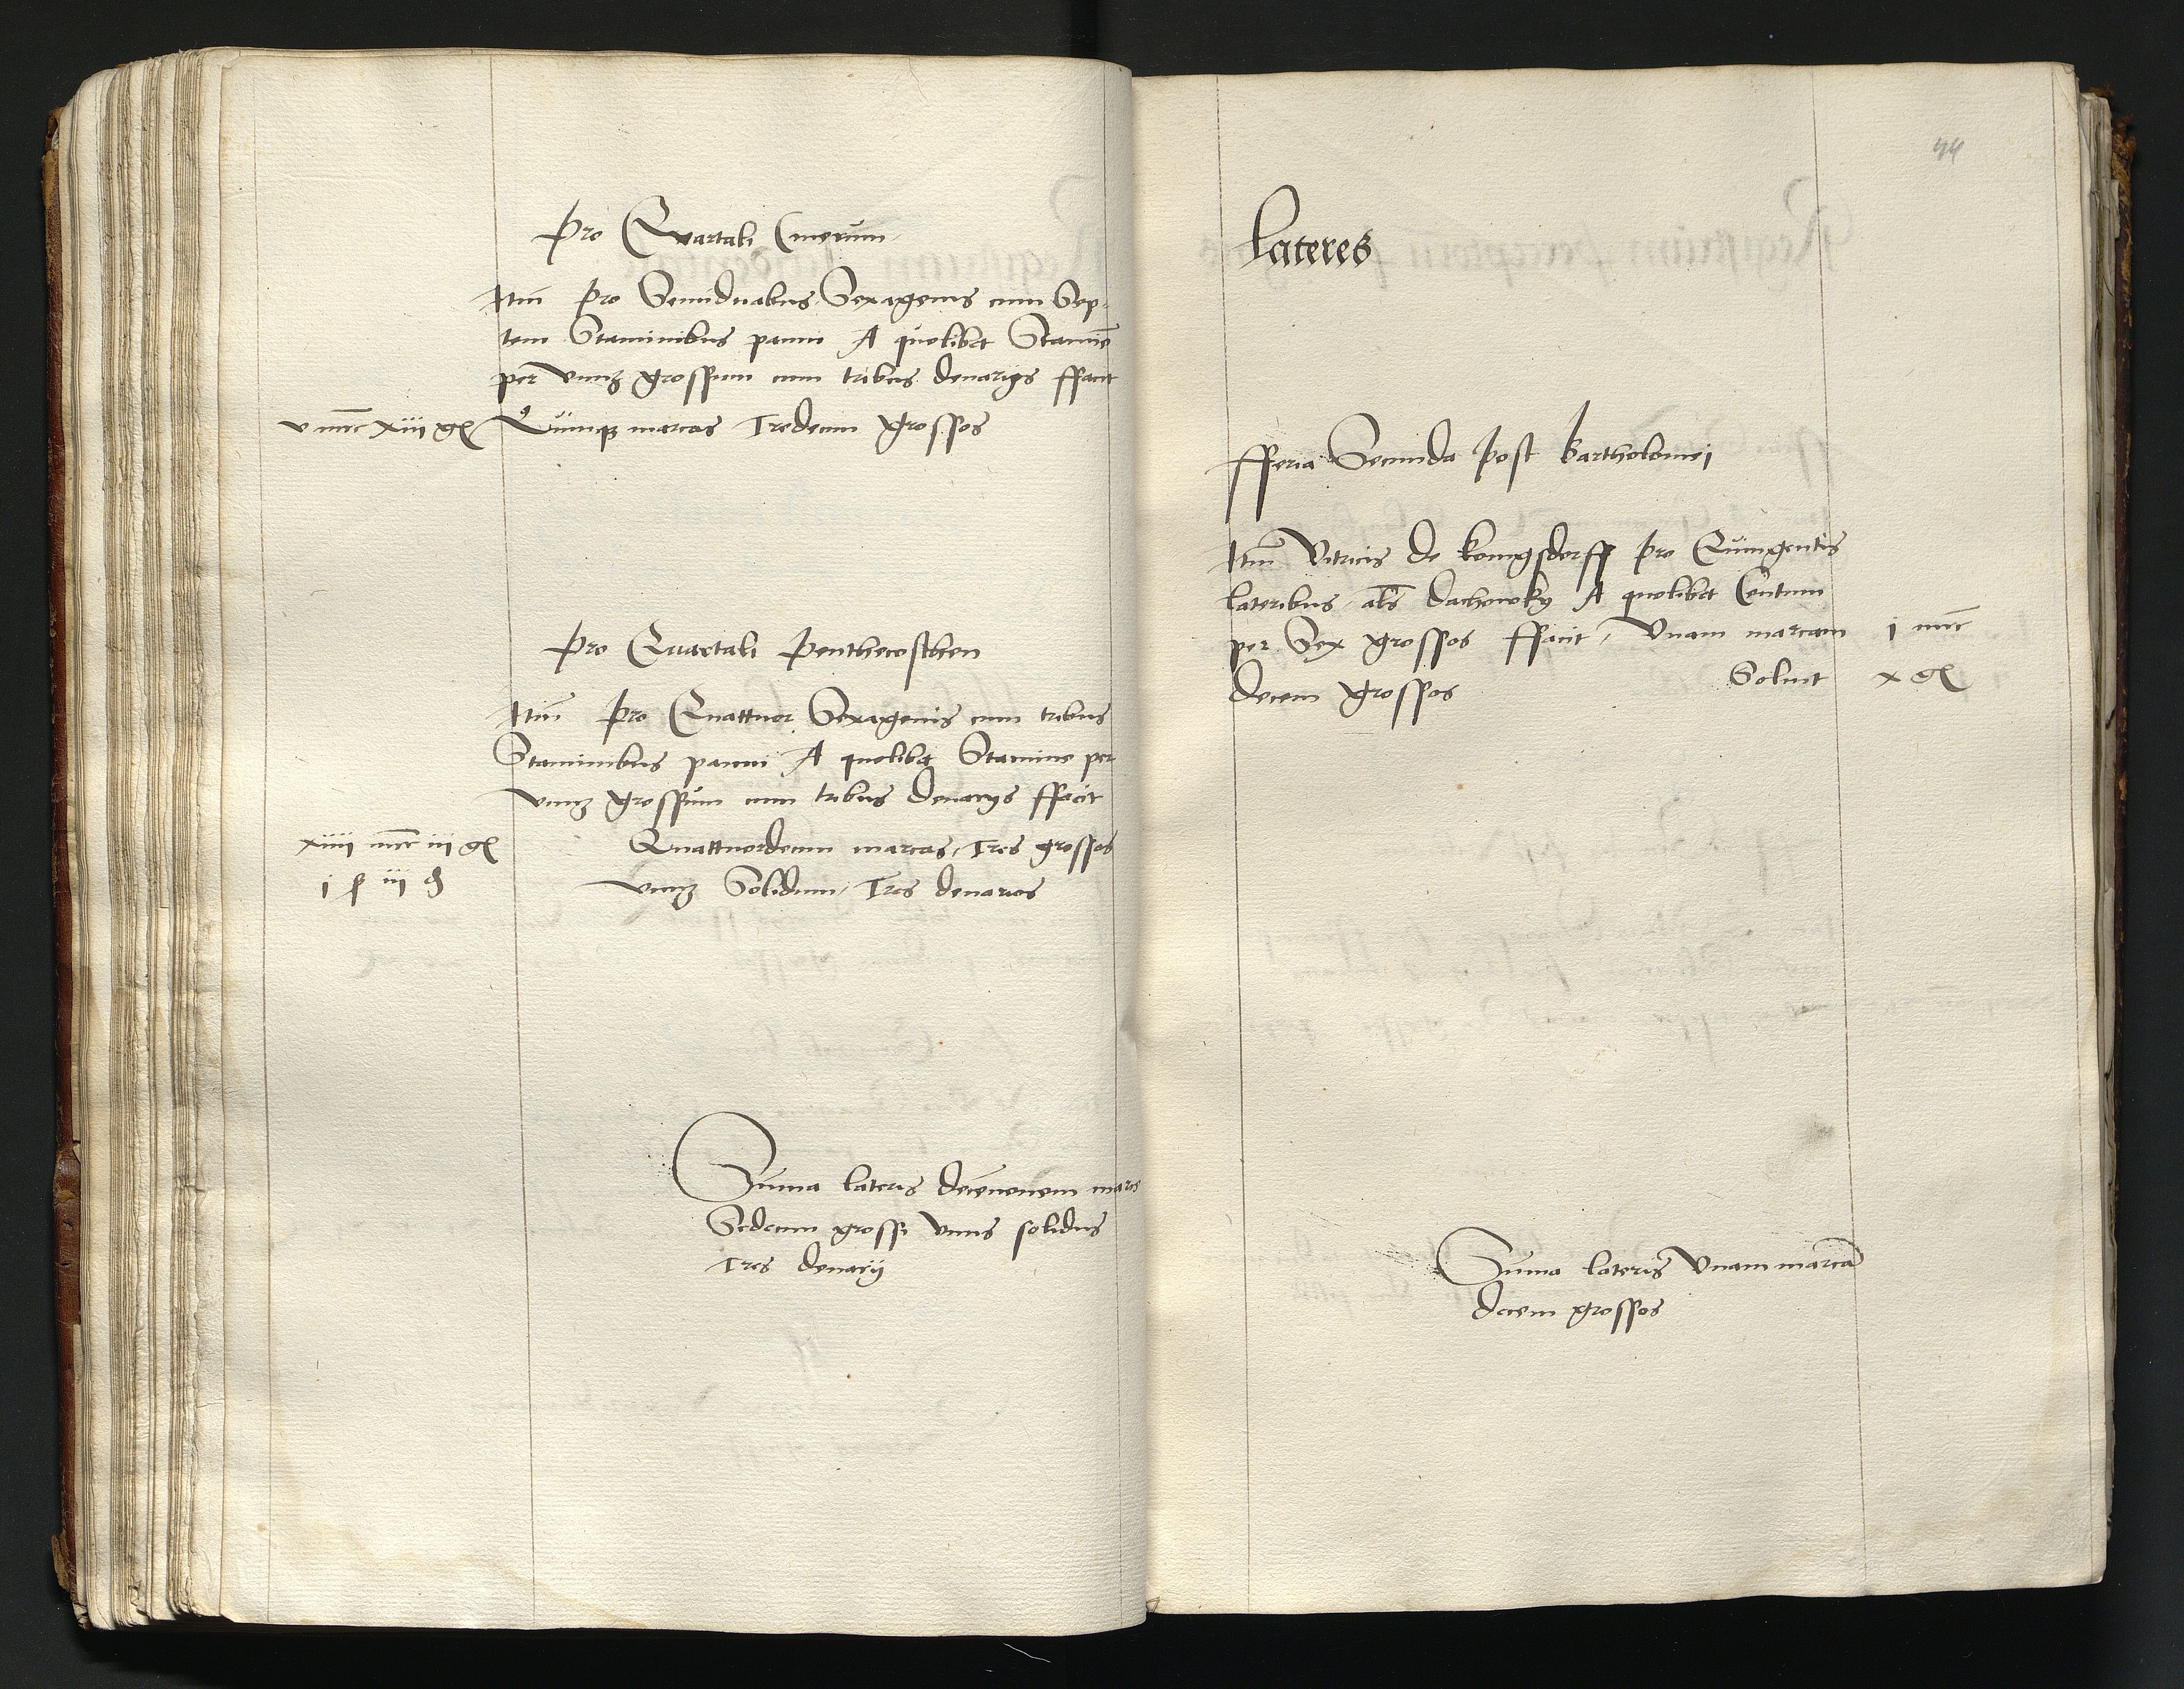 Pro Quartali Cinerum
Itm̄ Pro Semiduabus Sexagenis cum Sep-
tem Staminibus panni A quolibet Staminē
per vnnʒ grossum cum tribus denarijs ffacit
v mrc xiij gr Quinqʒ marcas Tredecim grossos
Pro Quartali Penthecosthen
Itm̄ Pro Quattuor Sexagenis cum tribus
Staminibus panni A quolibet Stamine per
vnnʒ grossum cum tribus denarys ffacit
xiiij mrc iij gr Quattuordecim marcas, Tres grossos
j ſ iij d vnnʒ Solidum, Tres denarios
Suma lateris decēnouem marc
Sedecim grossi vnus solidus
Tres denarij
44
Lateres
fferia Secunda Post Bartholomej
Itm̄ Vitricis de konigsdorff Pro Quingentis
lateribus als̄ dachowky A quolibet Centum
per Sex grossos ffacit, Vnam marcam j mrc
decem grossos Soluit x gr
Suma lateris Vnam marcā
decem grossos